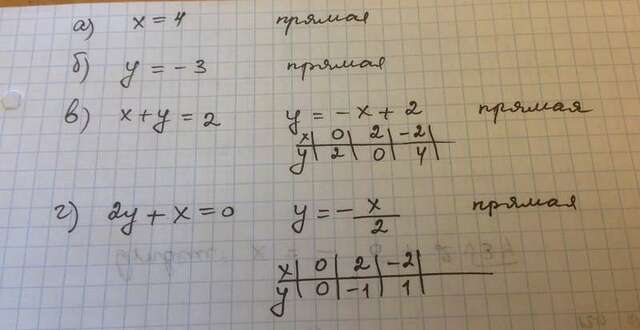 а) x = 4 прямая
б) y = -3 прямая
в) x + y = 2 y = -x + 2 прямая
x | 0 | 2 | -2 |
y | 2 | 0 | 4 |
г) 2y + x = 0 y = -x/2 прямая
x | 0 | 2 | -2 |
y | 0 | -1 | 1 |